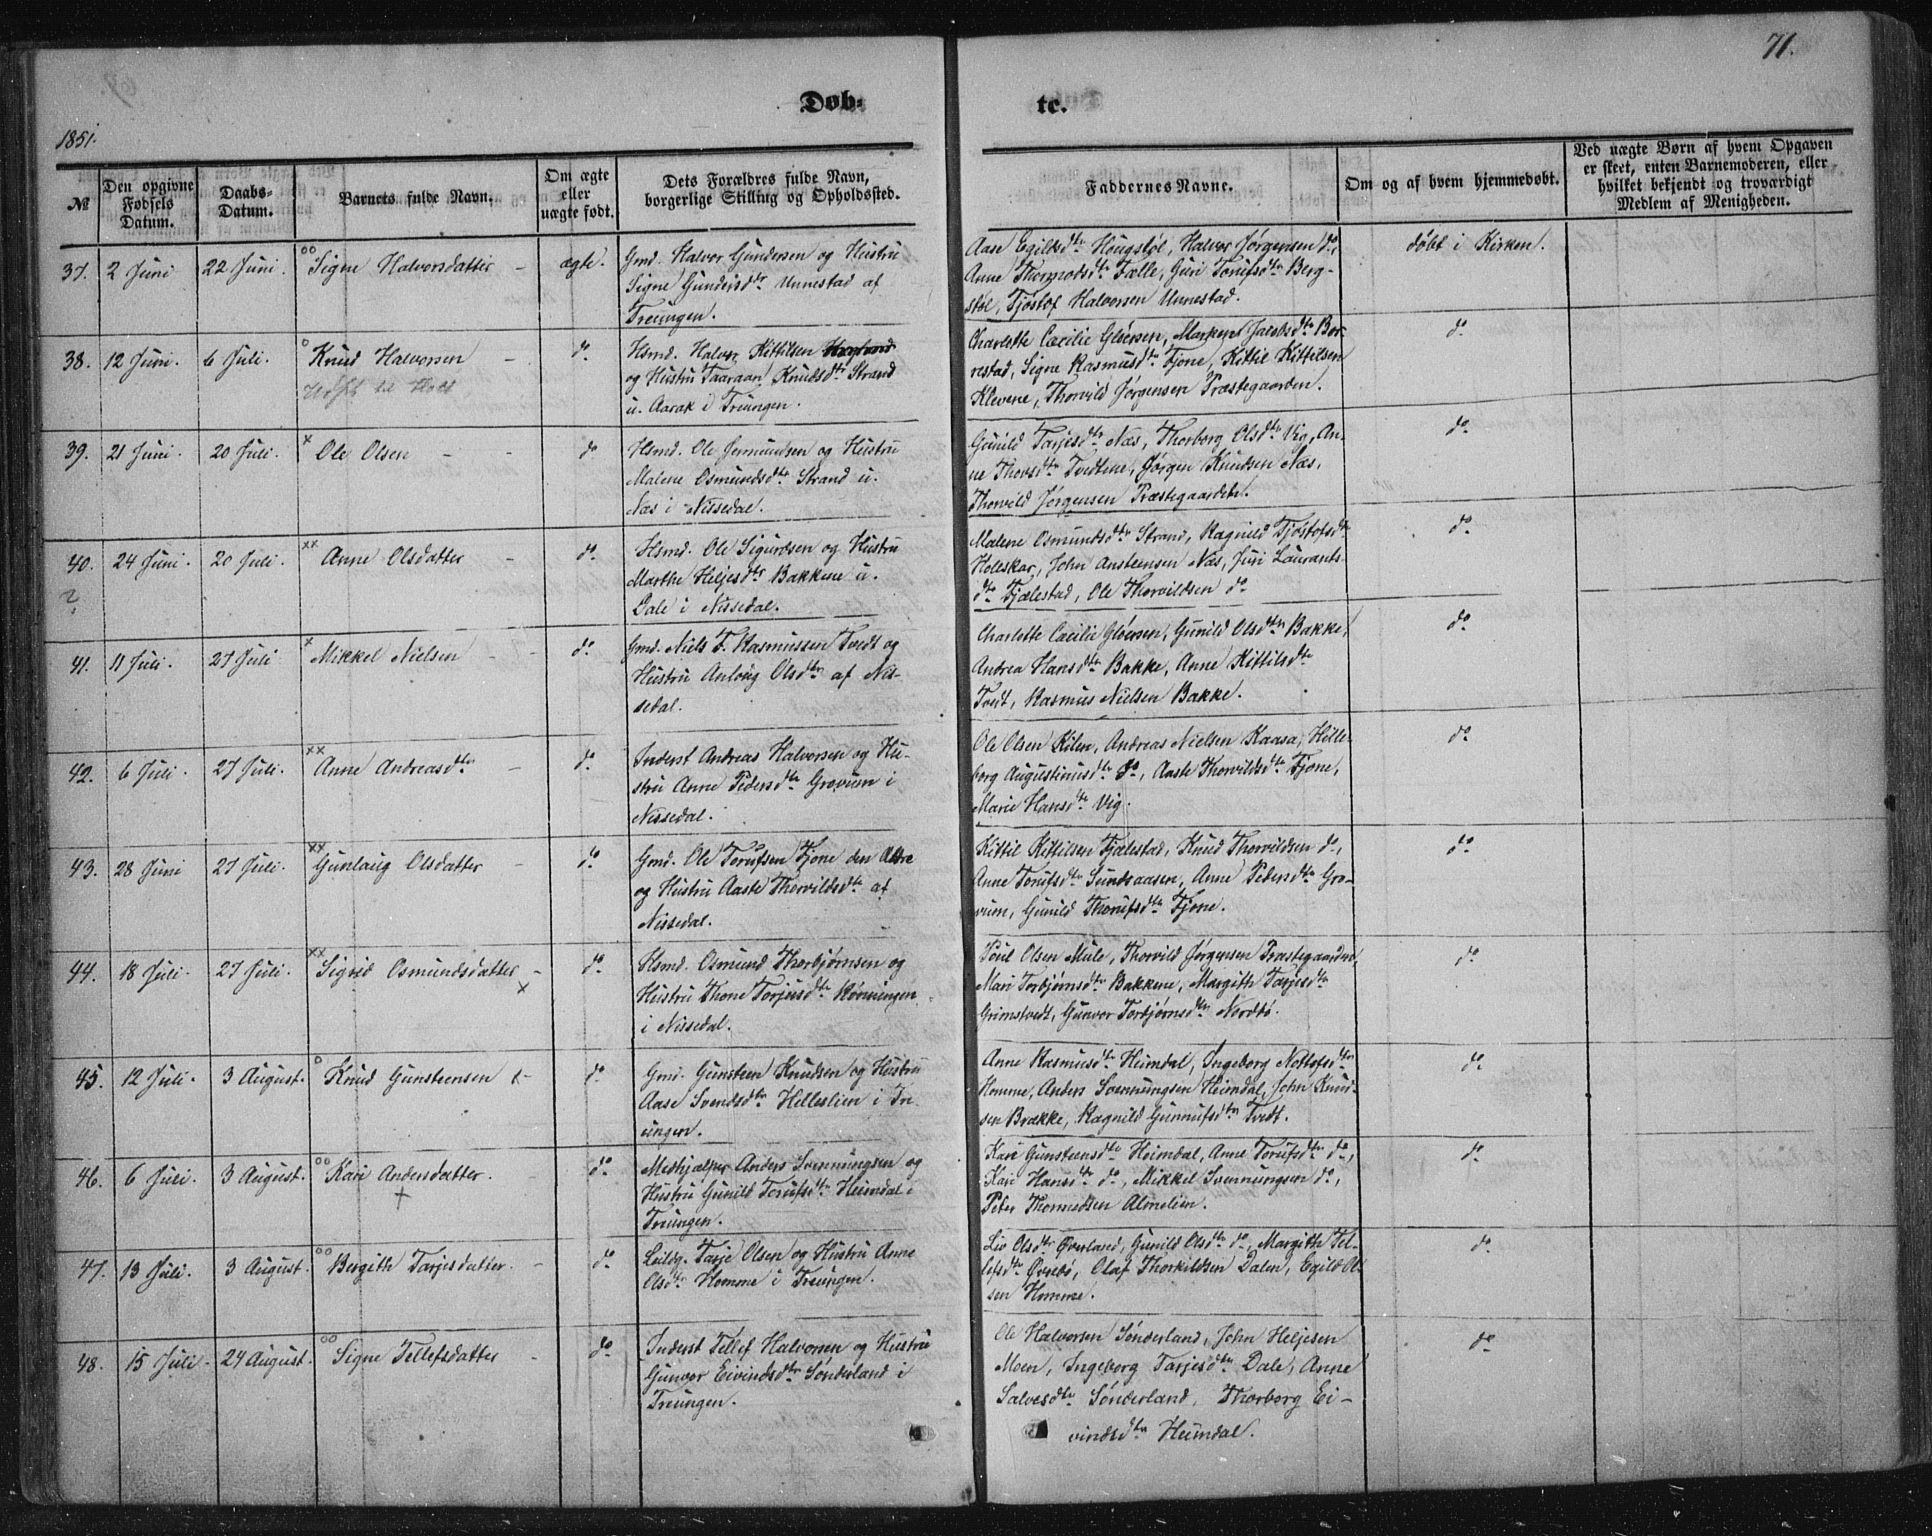 71.
Døb-
te.
1851.
№
Den opgivne
Fødsels
Datum.
Daabs-
Datum.
Barnets fulde Navn.
Om ægte
eller
uægte født.
Dets Forældres fulde Navn,
borgerlige Stilling og Opholdssted.
Faddernes Navne.
Om og af hvem hjemmedøbt.
Ved uægte Børn af hvem Opgaven
er skeet, enten Barnemoderen, eller
hvilket bekjendt og troværdigt
Medlem af Menigheden.
37. 2 Juni 22 Juni. Signe Halvorsdatter – ægte.
Gmd. Halvor Gundersen og Hustru
Signe Gundersdtr Unnestad af
Treungen.
Aase Egilsdtr Hougstøl, Halvor Jørgensen do,
Anne Thormodsdtr Fælle, Guri Torufsdtr Berg-
støl, Tjøstof Halvorsen Unnestad.
døbt i Kirken.
38. 12 Juni. 6 Juli. Knud Halvorsen – do.
Hsmd. Halvor Kittilsen
og Hustru Taaraan Knudsdtr Strand
u. Aarak i Treungen.
Charlotte Cæcilie Gløersen, Marken Jacobsdtr Bor-
restad, Signe Rasmusdtr Fjone, Kittil Kittilsen
Klevene, Thorvild Jørgensen Præstegaarden.
do
39. 21 Juni. 20 Juli. Ole Olsen – – do
Hsmd. Ole Jermundsen og Hustru
Malene Osmundsdtr Strand u.
Næs i Nissedal.
Gunild Tarjesdtr Næs, Thorborg Olsdtr Vig, An-
ne Thorsdtr Tvedtene, Jørgen Knudsen Næs,
Thorvild Jørgensen Præstegaarden.
do
40. 24 Juni. 20 Juli. Anne Olsdatter – do.
?
Hsmd. Ole Sigurdsen og Hustru
Marthe Heljesdtr Bakkene u.
Dale i Nissedal.
Malene Osmundsdtr Strand, Ragnild Tjøstofsdtr
Holeskar, John Anstensen Næs, Juri Laurants-
dtr Fjælestad, Ole Thorvildsen do
do
41. 11 Juli. 27 Juli Mikkel Nielsen – – do.
Gmd. Niels T. Rasmussen Tvedt og
Hustru Anlong Olsdtr af Nis-
sedal.
Charlotte Cæcilie Gløersen, Gunild Olsdtr Bakke,
Andrea Hansdtr Bakke, Anne Kittilsdtr
Tvedt, Rasmus Nielsen Bakke.
do
42. 6 Juli. 27 Juli. Anne Andreasdtr – do.
Inderst Andreas Halvorsen og Hu-
stru Anne Pedersdtr Grovum i
Nissedal.
Ole Olsen Kilen, Andreas Nielsen Kaasa, Hille-
borg Augustinusdtr do, Aaste Thorvildsdtr Fjone,
Marie Hansdtr Vig.
do
43. 28 Juni 27 Juli. Gunlaug Olsdatter – do
Gmd. Ole Torufsen Fjone den Ældre
og Hustru Aaste Thorvildsdtr af
Nissedal.
Kittil Kittilsen Fjælestad, Knud Thorvildsen do,
Anne Torufsdtr Sundsaasen, Anne Pedersdtr Gro-
vum, Gunild Thorufsdtr Fjone.
do
44. 18 Juli. 27 Juli. Sigrid Osmundsdatter – do.
Hsmd. Osmund Thorbjørnsen og
Hustru Thone Torjusdtr Rønningen
i Nissedal.
Poul Olsen Mule, Thorvild Jørgensen Præstegaarden,
Mari Torbjørnsdtr Bakkene, Margith Tarjesdtr
Grimstvedt, Gunvor Torbjørnsdtr Nordbø.
do
45. 12 Juli. 3 August. Knud Gunsteensen – do.
Gmd. Gunsteen Knudsen og Hustru
Aase Svendsdtr Helleslien i Tre-
ungen.
Anne Rasmusdtr Heimdal, Ingeborg Notlofsdtr
Homme, Anders Svennungsen Heimdal, John Knud-
sen Brække, Ragnild Gunnufsdtr Tvedt.
do
46. 6 Juli. 3 August. Kari Andersdatter. – do
Medhjælper Anders Svennungsen og
Hustru Gunild Torufsdtr Heimdal i
Treungen.
Kari Gunsteensdtr Heimdal, Anne Torufsdtr do,
Kari Hansdtr do, Mikkel Svennungsen do,
Peter Thormodsen Almelien.
do
47. 13 Juli. 3 August. Birgith Tarjesdatter. – do.
Leildg. Tarje Olsen og Hustru Anne
Olsdtr Homme i Treungen.
Liv Olsdtr Øverland, Gunild Olsdtr do, Margith Tel-
lefsdtr Øvrebø, Olaf Thorkildsen Dalen, Egild Ol-
sen Homme.
do
48. 15 Juli. 24 August. Signe Tellefsdatter – do
Inderst Tellef Halvorsen og Hustru
Gunvor Eivindsdtr Sønderland i
Treungen.
Ole Halvorsen Sønderland, John Heljesen
Moen, Ingeborg Tarjesdtr Dale, Anne
Salvesdtr Sønderland, Thorborg Ei-
vindsdtr Heimdal.
do